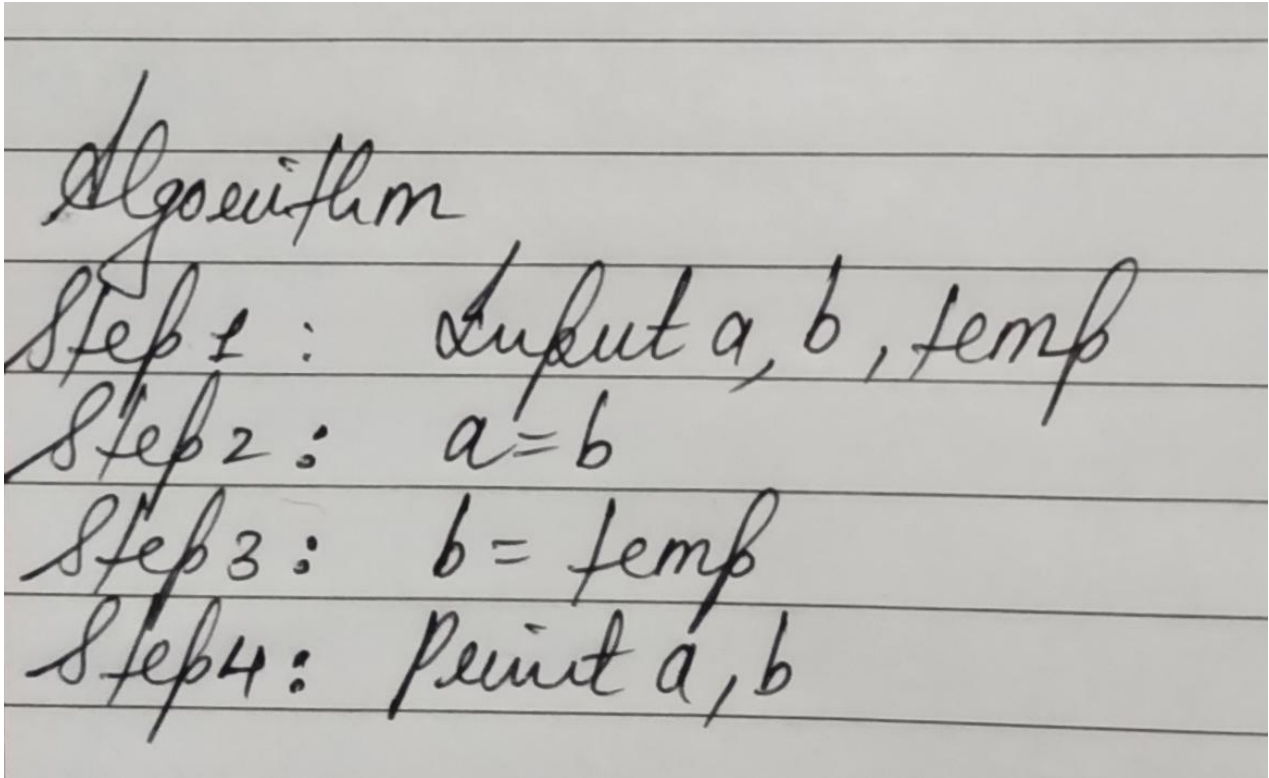 Algorithm
Step1 : Input a, b, temp
Step2 : a=b
Step3 : b= temp
Step4 : Print a, b